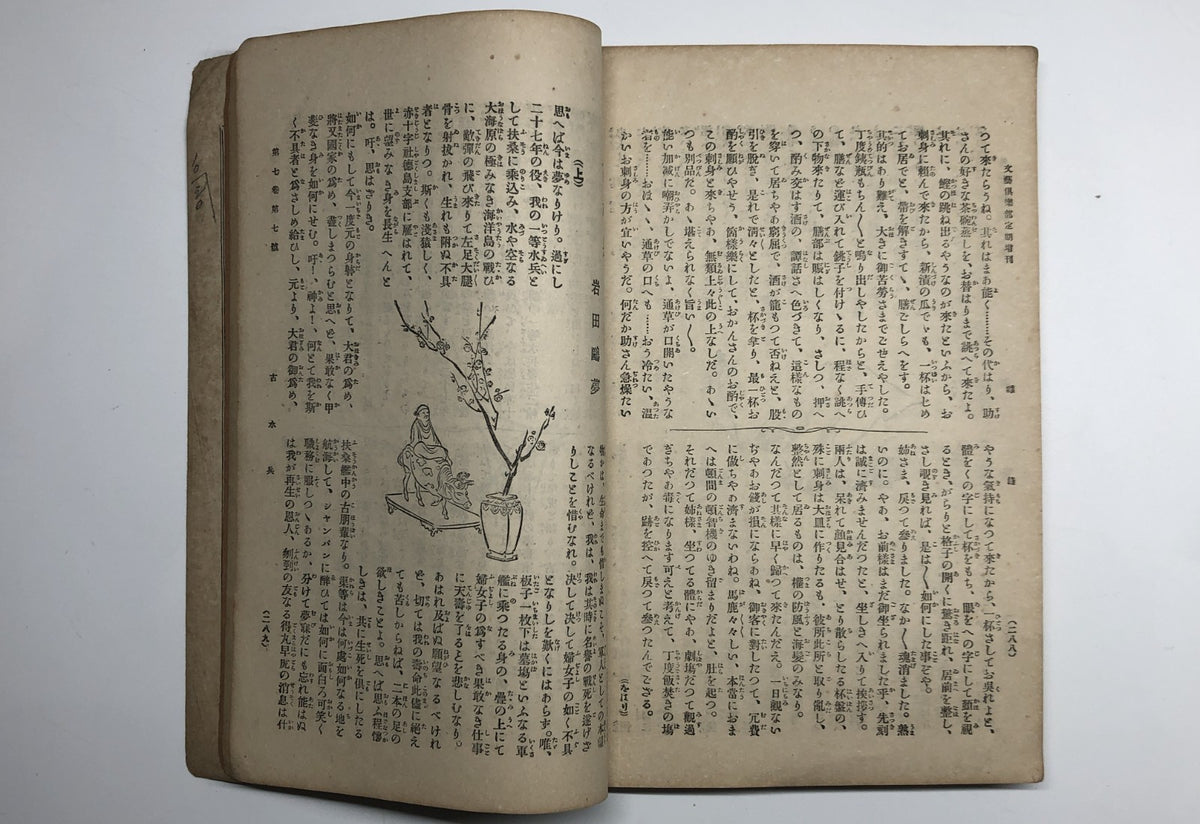 文藝倶樂部定期增刊
雜
錄
(二八八)
つて來たらうね。其れはまあ能く……その代はり、助
さんの好きな茶碗蒸しを、お替はりまで誂へて來たよ。
其れに、鰹の跳ね出るやうなのが來たといふから、お
刺身に粗んで來たから、新漬の瓜でゝも、一杯はじめ
てお居でと、帶を解きすてゝ、膳ごしらへをす。
其的はあり難え。大きに御苦勞さまでごぜえやした。
丁度銚瓶もちん〱と鳴り出しやしたからと、手傳ひ
て、膳など運び入れて銚子を付けゝるに、程なく誂へ
の下物來たりて、膳部は賑はしくなり、さしつ、押へ
つ、酌み交はす酒の、譚話さへ色づきて、這樣なもの
を穿いて居ちやあ窮屈で、酒が籠もつて否ねえと、股
引を脫ぎ、是れで淸々としたと、杯を拿り、最一杯お
酌を願ひやせう、箇樣樂にして、おかんさんのお酌で、
この刺身と來ちやあ、無類上々此の上なしだ。あゝい
つも別品だ。あゝ堪えられなく旨い〱。
能い加減に嘲弄かしでないよ、通草が口開いたやうな
通草の口へも……おう冷たい、溫
かいお刺身の方が宜いやうだ。何だか助さん急燥たい
やうな氣持になつて來たから一杯さしてお吳れよと、
體をくの字にして杯をもち、眼をへの字にして顏を視
るとき、がらりと格子の開くに驚き距れ、居前を整し、
さし覗き見れば、是は〱如何にした事ぞや。
姉さま、戾つて參りました。なか〱魂消ました。熱
いのに。やあ、お前樣はまだ御坐られました乎、先刻
は誠に濟みませんだつたと、坐しきへ入りて挨拶す。
兩人は、呆れて顏見合はせ、とり散らしたる杯盤の、
殊に刺身は大皿に作りたるも、彼所此所と取り亂し、
整然として居るものは、權の防風と海髮のみなり。
なんだつて其樣に早く歸つて來たんだえ。一日觀ない
ぢやあお錢が損にならあね、御客に對したつて、冗費
に倣ちやあ濟まないわね。馬鹿々々しい、本當におま
へは頓間の頓智機のゆき留まりだよと、肚を起つ。
それだつて姉樣、坐つてる體にやあ、劇塲だつて觀過
ぎちやあ毒になります可えと考へて、丁度飯焚きの塲
であつたが、跡を控へて戾つて參つたんでござる。
(をはり)
(上)
岩田鷗夢
思へば今は夢なりけり。過にし
二十七年の役、我の一等水兵と
して扶桑に乘込み、水や空なる
大海原の極みなき海洋島の戰ひ
に、敵彈の飛び來りて左足大腿
骨を射拔かれ、生れも附ぬ不具
者となりつ。斯くも淺猿しく、
赤十字社德島支部に雇はれて、
世に望みなき身を長生へんと
は。吁、思はざりき。
如何にもして今一度元の身躰となりて、大君の爲め、
將又國家の爲め、盡しまつらむと思へど、果敢なく甲
斐なき身を如何にせむ。吁!、神よ!、何とて我を斯
く不具者と爲さしめ給ひし、元より、大君の御爲め、
なるべけれど、我は、我は其時に名譽の戰死を遂げざ
りしことを惜むなれ。決して決して婦女子の如く不具
となりしを歎くにはあらず。唯、
板子一枚下は墓塲といふなる軍
艦に乘つたる身の、疊の上にて
婦女子の爲すべき果敢なき仕事
に天壽を了るとを悲しむなり。
あはれ及ばぬ願望なるべけれ
ど、切ては我の壽命此儘に絕え
ても苦しからねば、二本の足の
欲しきことよ。思へば思ふ程懷
しきは、共に生死を俱にしたる
扶桑艦中の古朋輩なり。渠等は今は何處如何なる地を
航海して、シャンパンに醉ひては如何に面しろ可笑く
職務に服しつゝあるか、分けて夢寐だにも忘れ能はぬ
は我が再生の恩人、刎頸の友なる得丸早虎の消息は什
第七卷第七號
古水兵
(二八九)